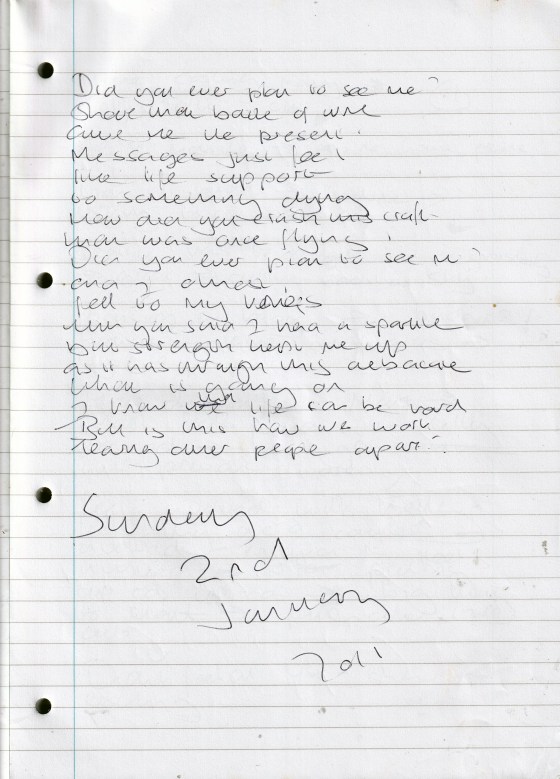 Did you ever plan to see me?
Shove that bottle of wine
Give me the present.
Messages just feel
like life support
to something dying
How did you crash this craft
that was once flying?
Did you ever plan to see me?
and I almost
fell to my knees
when you said I had a sparkle
but strength kept me up
as it has through this debacle
What is going on
I know that life can be hard
But is this how we work
Tearing other people apart?
Sunday
2nd
January
2011